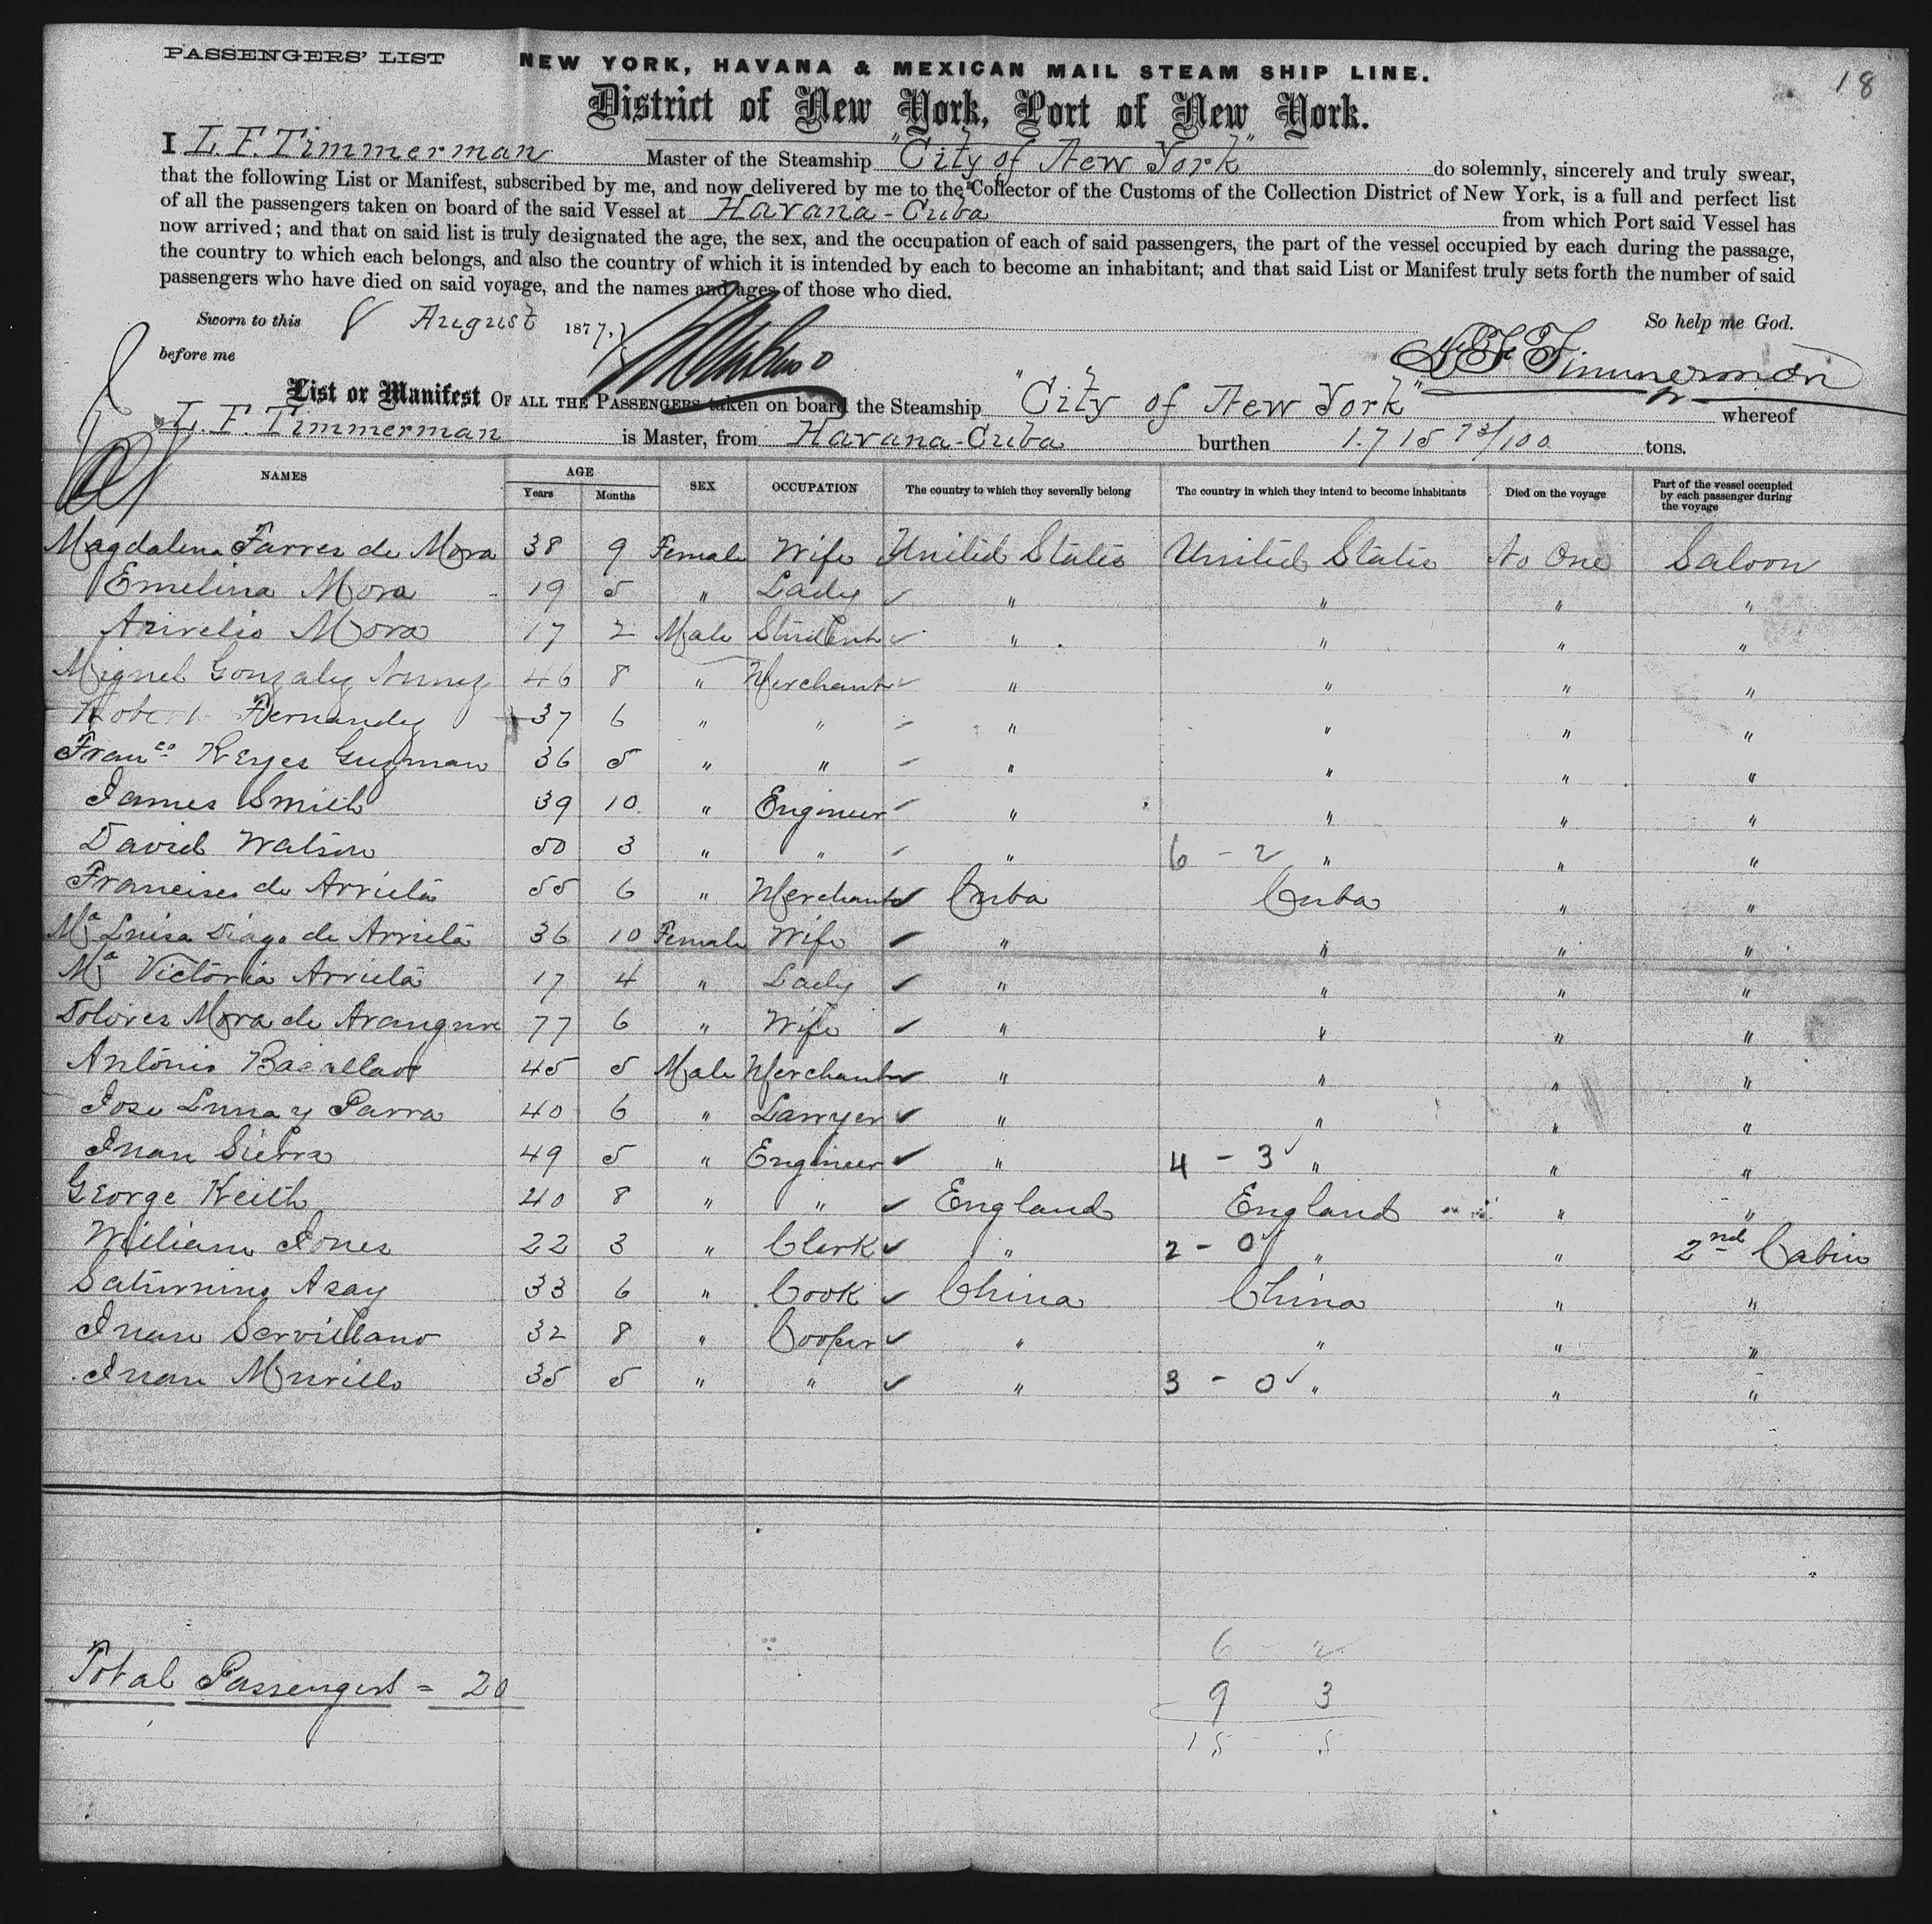 PASSENGERS' LIST
NEW YORK, HAVANA & MEXICAN MAIL STEAM SHIP LINE.
18
District of New York, Port of New York.
I L. F. Timmerman Master of the Steamship "City of New York" do solemnly, sincerely and truly swear,
that the following List or Manifest, subscribed by me, and now delivered by me to the Collector of the Customs of the Collection District of New York, is a full and perfect list
of all the passengers taken on board of the said Vessel at Havana - Cuba from which Port said Vessel has
now arrived; and that on said list is truly designated the age, the sex, and the occupation of each of said passengers, the part of the vessel occupied by each during the passage,
the country to which each belongs, and also the country of which it is intended by each to become an inhabitant; and that said List or Manifest truly sets forth the number of said
passengers who have died on said voyage, and the names and ages of those who died.
Sworn to this 8 August 1877. So help me God.
before me L. F. Timmerman
List or Manifest OF ALL THE PASSENGERS taken on board the Steamship "City of New York" whereof
L. F. Timmerman is Master, from Havana - Cuba burthen 1.715 73/100 tons.
NAMES AGE Years Months SEX OCCUPATION The country to which they severally belong The country in which they intend to become inhabitants Died on the voyage Part of the vessel occupied by each passenger during the voyage
Magdalena Farres de Mora 38 9 Female Wife United States United States No One Saloon
Emelina Mora 19 5 " Lady ✓ " " " "
Aurelio Mora 17 2 Male Student ✓ " " " "
Miguel Gonzalez Nunez 46 8 " Merchant ✓ " " " "
Robert Fernandez 37 6 " " ✓ " " " "
Franco Reyes Guzman 36 5 " " ✓ " " " "
James Smith 39 10 " Engineer ✓ " " " "
David Watson 50 3 " " ✓ " 6 - 2 " " "
Francisco de Arrieta 55 6 " Merchant ✓ Cuba Cuba " "
Ma Luisa Diago de Arrieta 36 10 Female Wife ✓ " " " "
Ma Victoria Arrieta 17 4 " Lady ✓ " " " "
Dolores Mora de Arangure 77 6 " Wife ✓ " " " "
Antonio Bacallao 45 5 Male Merchant ✓ " " " "
Jose Luna y Parra 40 6 " Lawyer ✓ " " " "
Juan Sierra 49 5 " Engineer ✓ " 4 - 3 ✓ " " "
George Keith 40 8 " " ✓ England England " "
William Jones 22 3 " Clerk ✓ " 2 - 0 ✓ " " 2nd Cabin
Saturnino Asay 33 6 " Cook ✓ China China " "
Juan Servillano 32 8 " Cooper ✓ " " " "
Juan Murillo 35 5 " " ✓ " 3 - 0 ✓ " " "
6 2
Total Passengers = 20
9 3
15 5